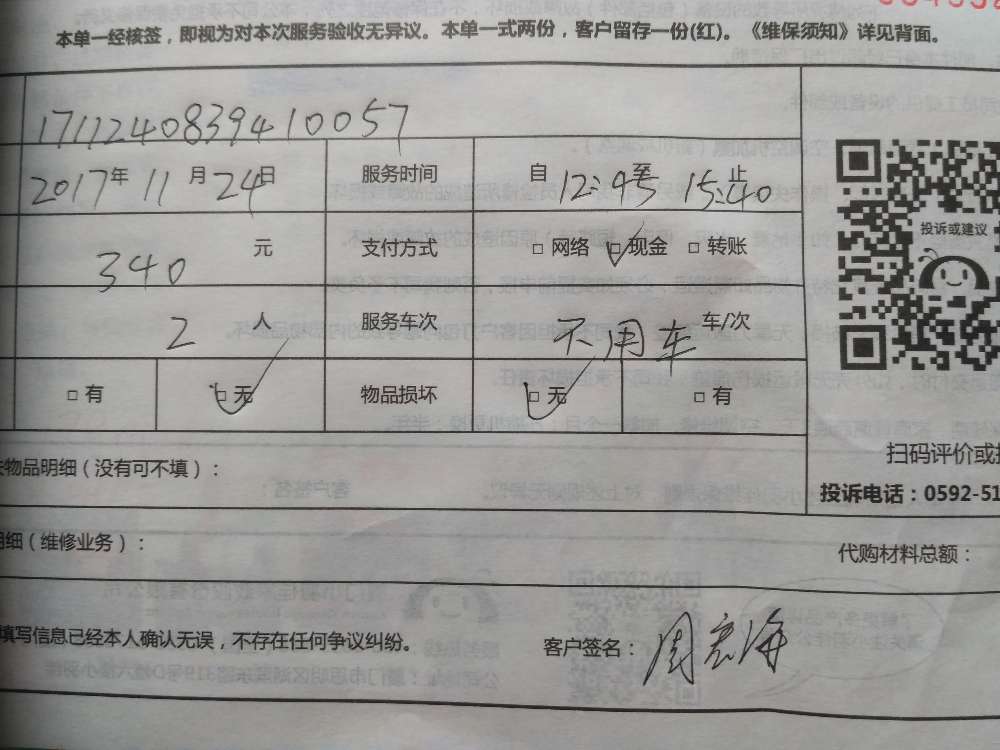 本单一经核签，即视为对本次服务验收无异议。本单一式两份，客户留存一份(红)。《维保须知》详见背面。
1711240839410057
2017年11月24日 服务时间 自12:45至15:40止
340元 支付方式 □ 网络 □ 现金 □ 转账
2人 服务车次 不用车 车/次
□ 有 □ 无 物品损坏 □ 无 □ 有
投诉或建议
物品明细（没有可不填）：
扫码评价或
投诉电话：0592-51
细（维修业务）：
代购材料总额：
填写信息已经本人确认无误，不存在任何争议纠纷。
客户签名：周宏海